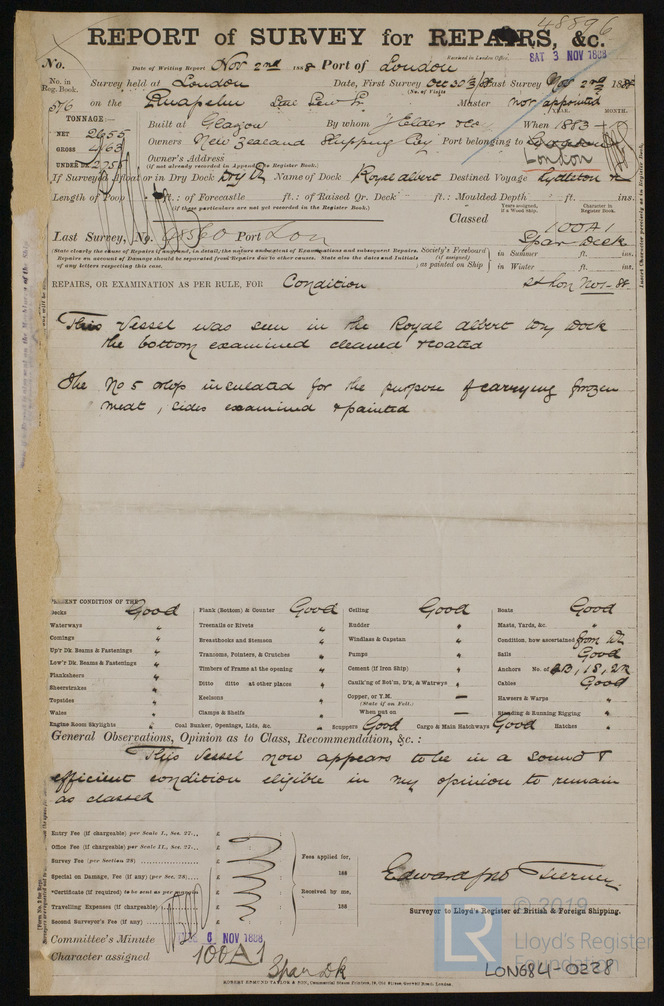 48896
REPORT of SURVEY for REPAIRS, &c.
No. Date of Writing Report Nov 2nd 1888 Port of London Received in London Office SAT 3 NOV 1888
No. in Reg. Book. Survey held at London Date, First Survey Oct 30th/88 Last Survey Nov 2nd 1888
(No. of Visits
576 on the Ruapehu Master not appointed
TONNAGE:— YEAR. MONTH.
Built at Glasgow By whom J Elder &Co When 1883
NET 2655
GROSS 4163
Owners New Zealand Shipping Coy Port belonging to
London
UNDER DK
Owner's Address
(If not already recorded in Appendix to Register Book.)
If Surveyed Afloat or in Dry Dock Dry D Name of Dock Royal Albert Destined Voyage Lyttleton
Length of Poop ft.: of Forecastle ft.: of Raised Qr. Deck ft.: Moulded Depth ft. ins.
(if these particulars are not yet recorded in the Register Book.)
Years assigned, If a Wood Ship. Character in Register Book.
Classed 100A1
Spar Deck
Last Survey, No. 48560 Port Lon
(State clearly the cause of Repairs if any, and, in detail, the nature and extent of Examinations and subsequent Repairs.
Repairs on account of Damage should be separated from Repairs due to other causes. State also the dates and Initials
of any letters respecting this case.
Society's Freeboard (if assigned) as painted on Ship in Summer ft. ins.
in Winter ft. ins.
REPAIRS, OR EXAMINATION AS PER RULE, FOR Condition
This Vessel was seen in the Royal Albert Dry Dock
the bottom examined cleaned & coated
The No 5 orlop insulated for the purpose of carrying frozen
meat, sides examined & painted
PRESENT CONDITION OF THE
Decks Good Plank (Bottom) & Counter Good Ceiling Good Boats Good
Waterways " Treenails or Rivets " Rudder " Masts, Yards, &c. "
Comings " Breasthooks and Stemson " Windlass & Capstan " Condition, how ascertained from Dk
Up'r Dk Beams & Fastenings " Transoms, Pointers, & Crutches " Pumps " Sails Good
Low'r Dk. Beams & Fastenings " Timbers of Frame at the opening " Cement (if Iron Ship) " Anchors No. of 3B, 1S, 2K
Planksheers " Ditto ditto at other places " Caulk'ng of Bot'm, D'k, & Watrwys " Cables Good
Sheerstrakes " Keelsons " Copper, or Y.M. — Hawsers & Warps "
(State if on Felt.)
Topsides " Clamps & Shelfs " When put on — Standing & Running Rigging "
Wales "
Engine Room Skylights " Coal Bunker, Openings, Lids, &c. " Scuppers Good Cargo & Main Hatchways Good Hatches "
General Observations, Opinion as to Class, Recommendation, &c.:
This Vessel now appears to be in a sound &
efficient condition eligible in my opinion to remain
as classed
Entry Fee (if chargeable) per Scale I., Sec. 27... £ : :
Office Fee (if chargeable) per Scale II., Sec. 27... £
Survey Fee (per Section 28) £
Fees applied for,
188
Special on Damage, Fee (if any) (per Sec. 28) £
*Certificate (if required) to be sent as per margin £
Received by me,
Travelling Expenses (if chargeable) £
188
Second Surveyor's Fee (if any) £
Surveyor to Lloyd's Register of British & Foreign Shipping.
Committee's Minute 6 NOV 1888
Character assigned 100A1
Spar Dk
ROBERT EDMUND TAYLOR & SON, Commercial Steam Printers, 19, Old Street, Goswell Road, London.
LR
© 2019
Lloyd's Register
Foundation
LON684-0228